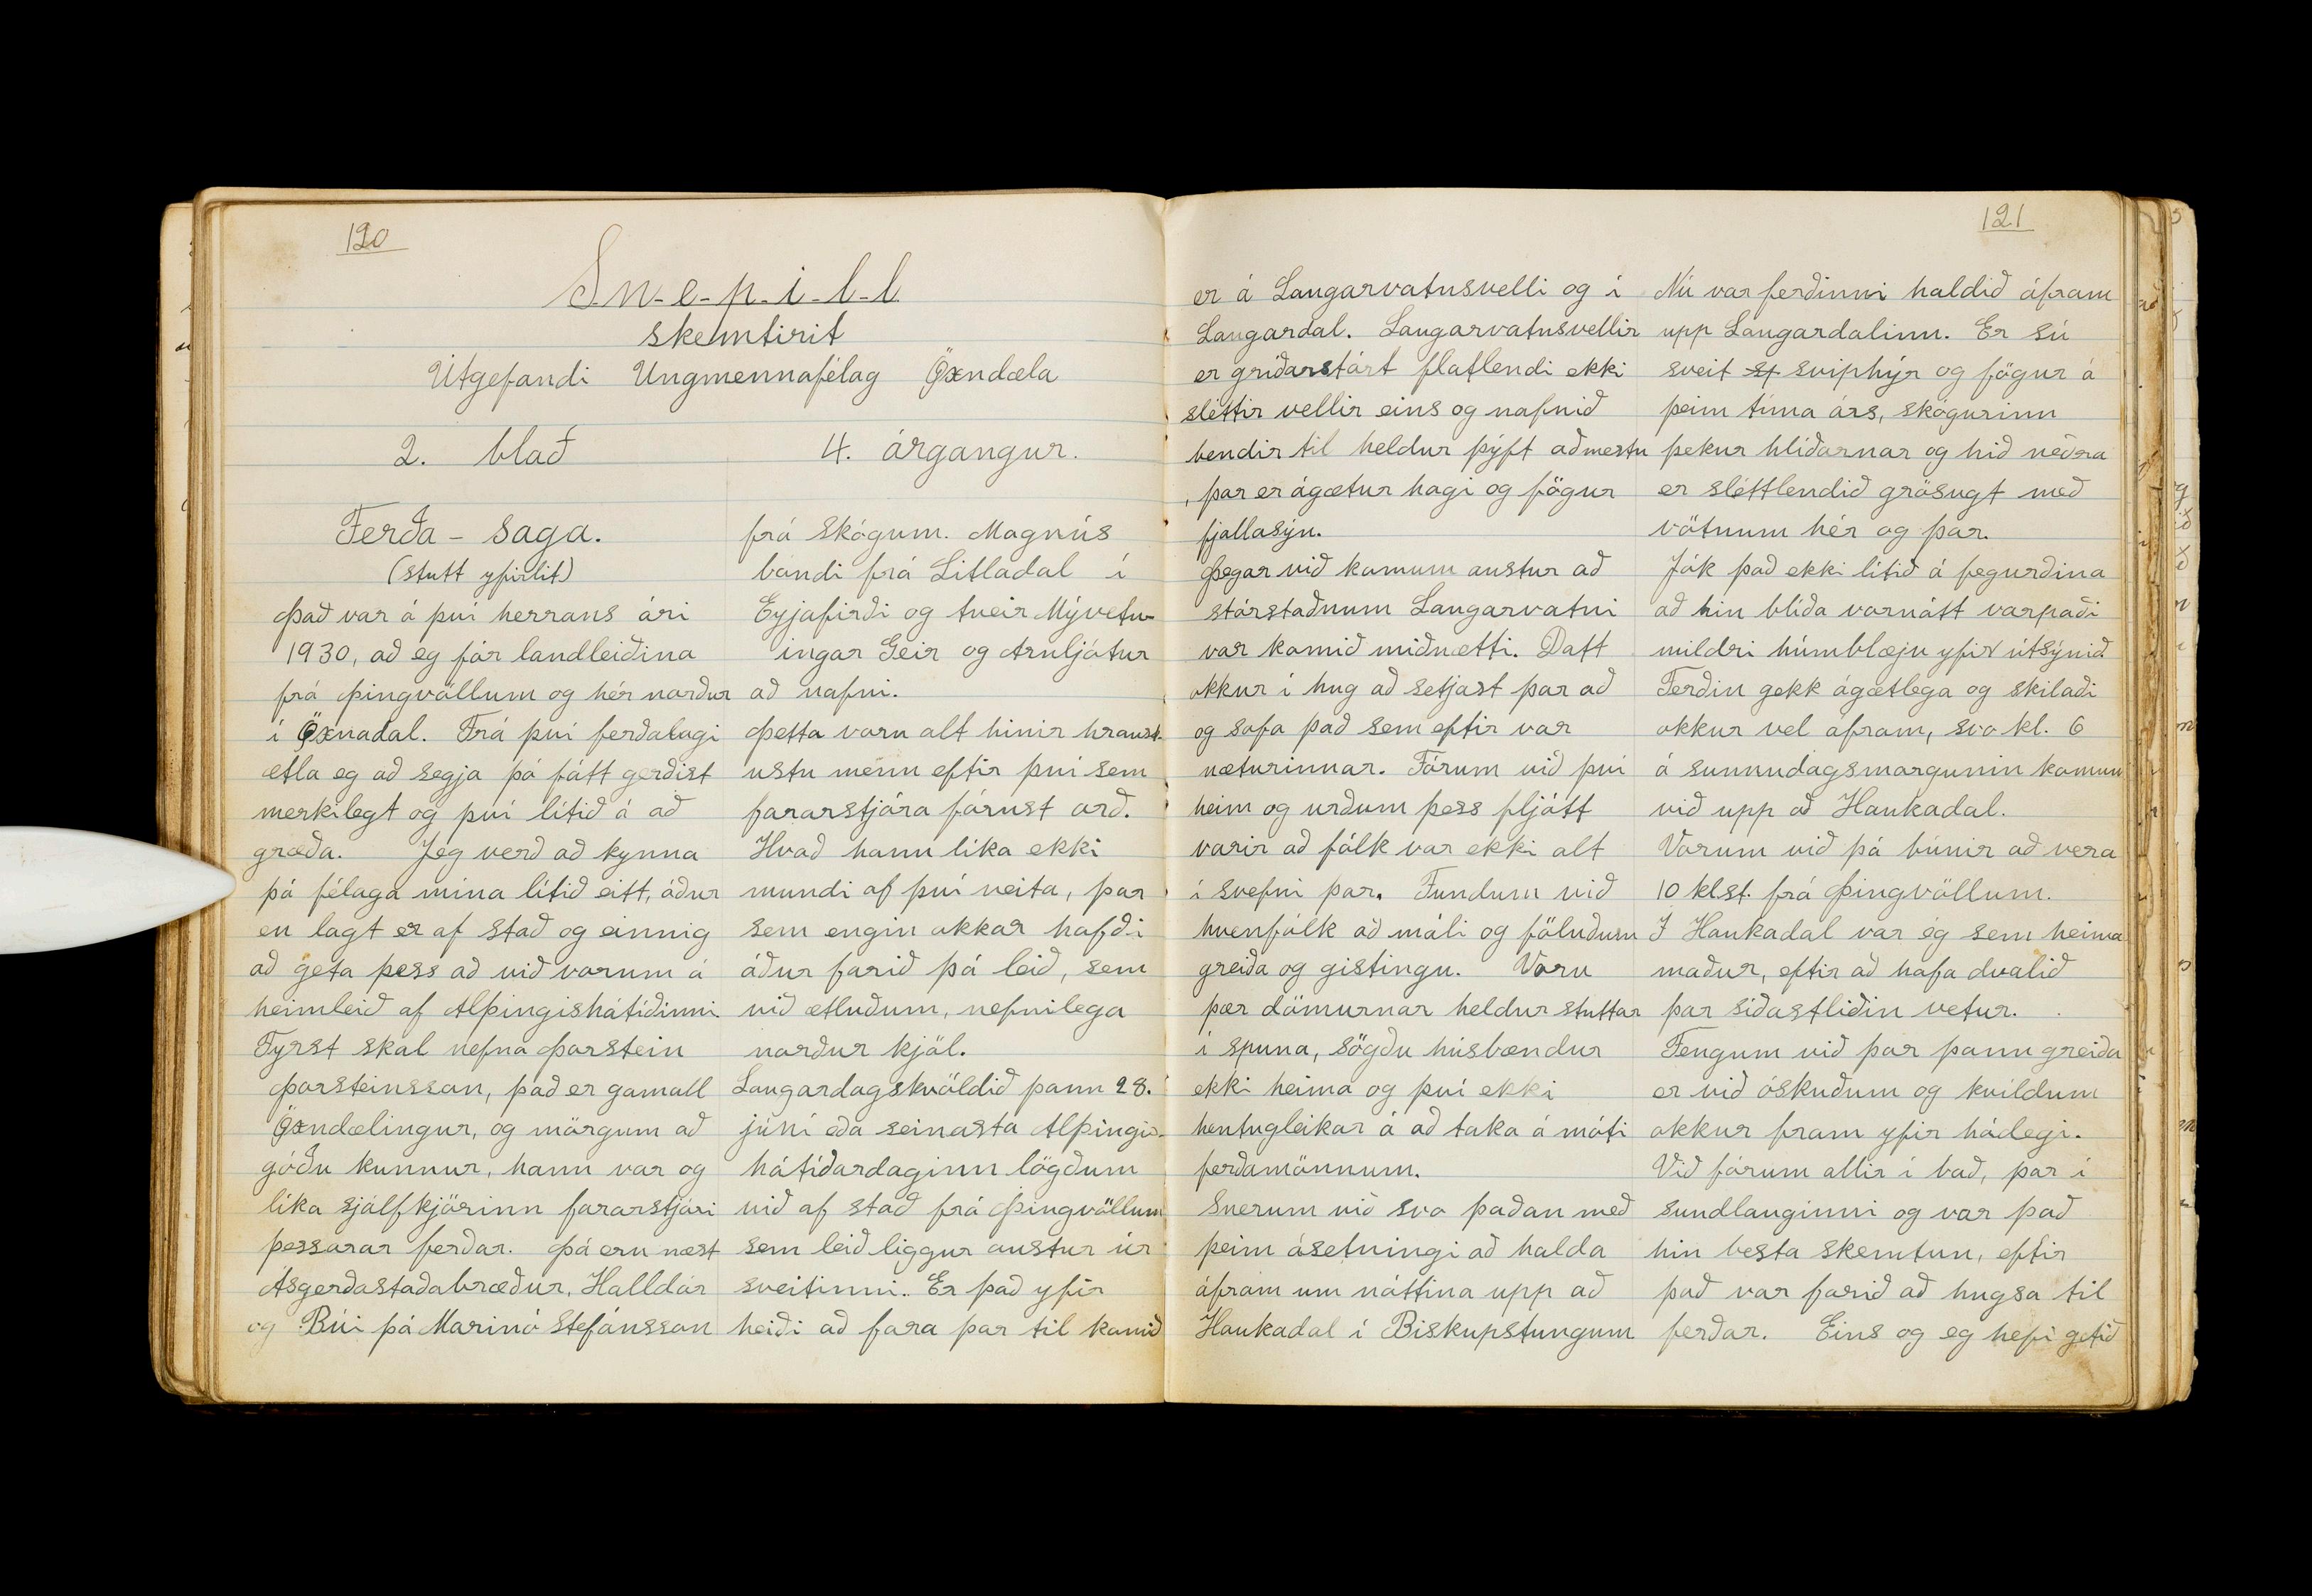 120
S-n-e-p-i-l-l
skemtirit
Útgefandi Ungmennafélag Öxndæla
2. blað 4. árgangur.
Ferða - saga.
(stutt yfirlit)
Það var á því herrans ári
1930, að eg fór landleiðina
frá Þingvöllum og hér norður
í Öxnadal. Frá því ferðalagi
ætla eg að segja þó fátt gerðist
merkilegt og því lítið á að
græða. Jeg verð að kynna
þá félaga mína lítið eitt, áður
en lagt er af stað og einnig
að geta þess að við vorum á
heimleið af Alþingishátíðinni
Fyrst skal nefna Þorstein
Þorsteinsson, það er gamall
Öxndælingur, og mörgum að
góðu kunnur, hann var og
líka sjálfkjörinn fararstjóri
þessarar ferðar. Þá eru næst
Ásgerðastaðabræður, Halldór
og Búi þá Marinó Stefánsson
frá Skógum. Magnús
bóndi frá Litladal í
Eyjafirði og tveir Mývetn-
ingar Geir og Arnljótur
að nafni.
Þetta voru alt hinir hraust-
ustu menn eftir því sem
fararstjóra fórust orð.
Hvað hann líka ekki
mundi af því veita, þar
sem engin okkar hafði
áður farið þá leið, sem
við ætluðum, nefnilega
norður kjöl.
Laugardagskvöldið þann 28.
júní eða seinasta Alþingis-
hátíðardaginn lögðum
við af stað frá Þingvöllum
sem leið liggur austur úr
sveitinni. Er það yfir
heiði að fara þar til komið
121
er á Laugarvatnsvelli og í
Laugardal. Laugarvatnsvellir
er gríðarstórt flatlendi ekki
sléttir vellir eins og nafnið
bendir til heldur þýft að mestu
, þar er ágætur hagi og fögur
fjallasýn.
Þegar við komum austur að
stórstaðnum Laugarvatni
var komið miðnætti. Datt
okkur í hug að setjast þar að
og sofa það sem eftir var
næturinnar. Fórum við því
heim og urðum þess fljótt
varir að fólk var ekki alt
í svefni þar. Fundum við
kvenfólk að máli og föluðum
greiða og gistingu. Voru
þær dömurnar heldur stuttar
í spuna, sögðu húsbændur
ekki heima og því ekki
hentugleikar á að taka á móti
ferðamönnum.
Snerum við svo þaðan með
þeim ásetningi að halda
áfram um nóttina upp að
Haukadal í Biskupstungum
Nú var ferðinni haldið áfram
upp Laugardalinn. Er sú
sveit st sviphýr og fögur á
þeim tíma árs, skógurinn
þekur hlíðarnar og hið neðra
er sléttlendið grösugt með
vötnum hér og þar.
Jók það ekki lítið á fegurðina
að hin blíða vornótt varpaði
mildri húmblæju yfir útsýnið.
Ferðin gekk ágætlega og skilaði
okkur vel áfram, svo kl. 6
á sunnudagsmorgunin komum
við upp að Haukadal.
Vorum við þá búnir að vera
10 klst. frá Þingvöllum.
Í Haukadal var ég sem heima
maður, eftir að hafa dvalið
þar síðastliðin vetur.
Fengum við þar þann greiða
er við óskuðum og hvíldum
okkur fram yfir hádegi.
Við fórum allir í bað, þar í
sundlauginni og var það
hin besta skemtun, eftir
það var farið að hugsa til
ferðar. Eins og eg hefi getið